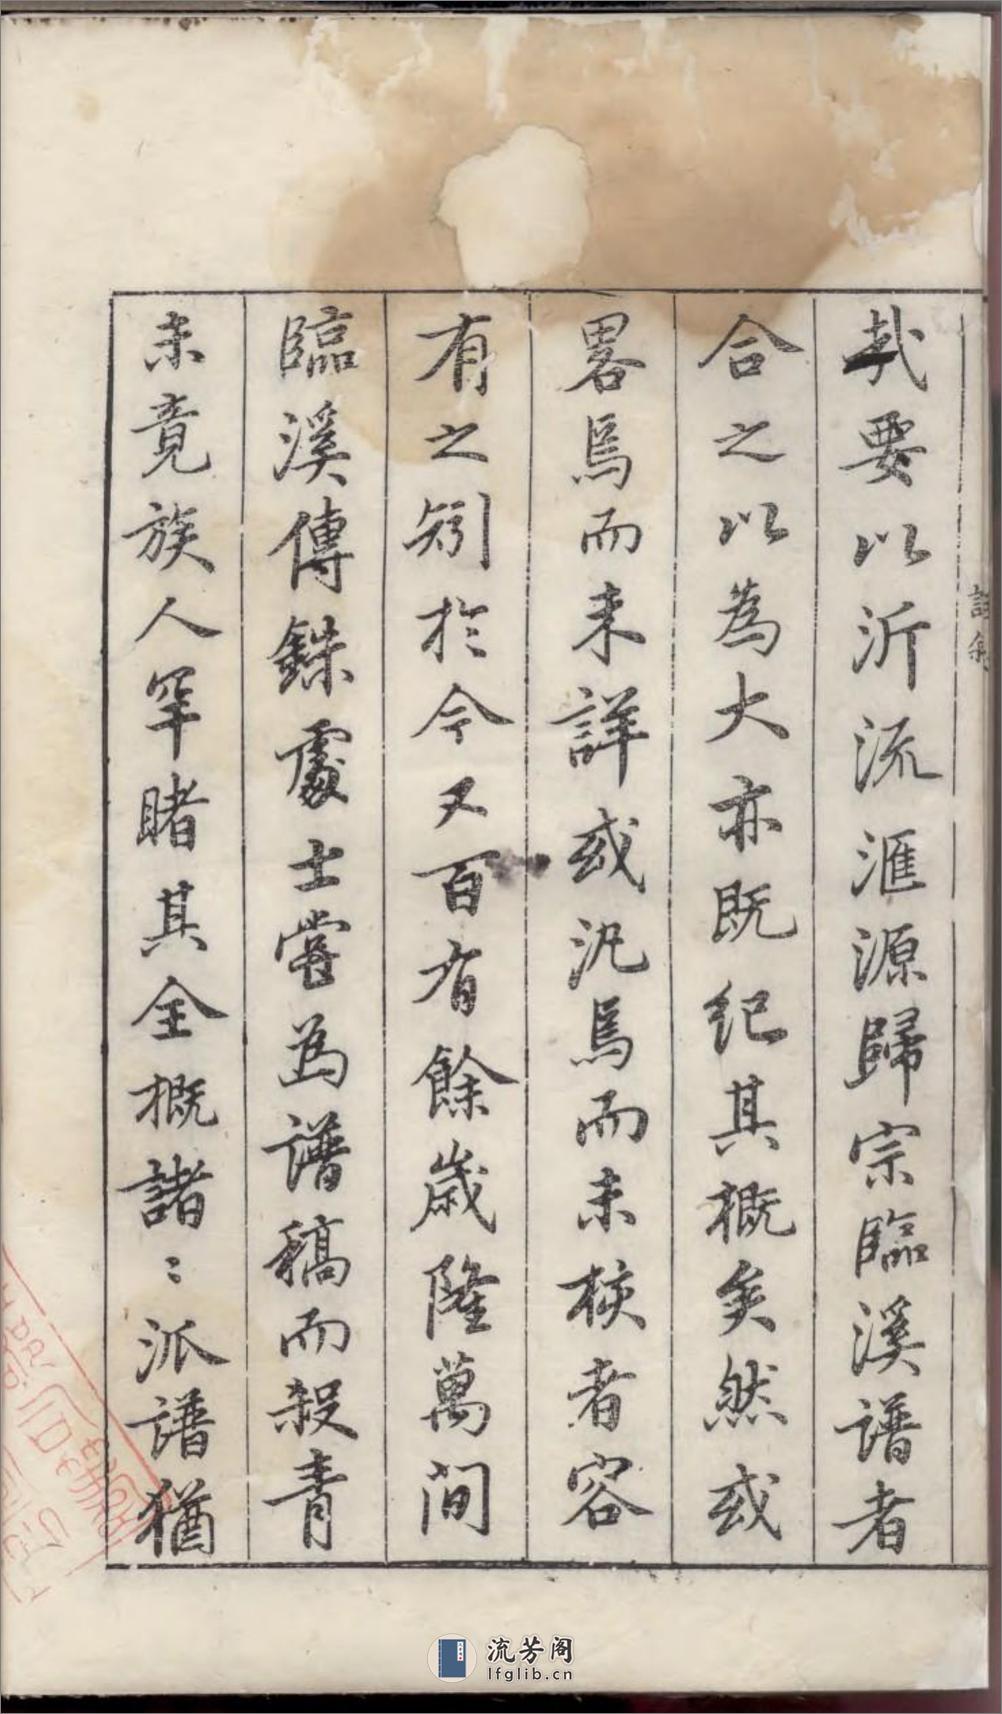 哉要以沂流滙源歸宗臨溪譜者
合之以為大亦既紀其概矣然或
畧焉而未詳或汎焉而未核者容
有之矧於今又百有餘歲隆萬間
臨溪傳銖處士嘗為譜稿而殺青
未竟族人罕睹其全概諸〻派譜猶
流芳阁
lfglib.cn